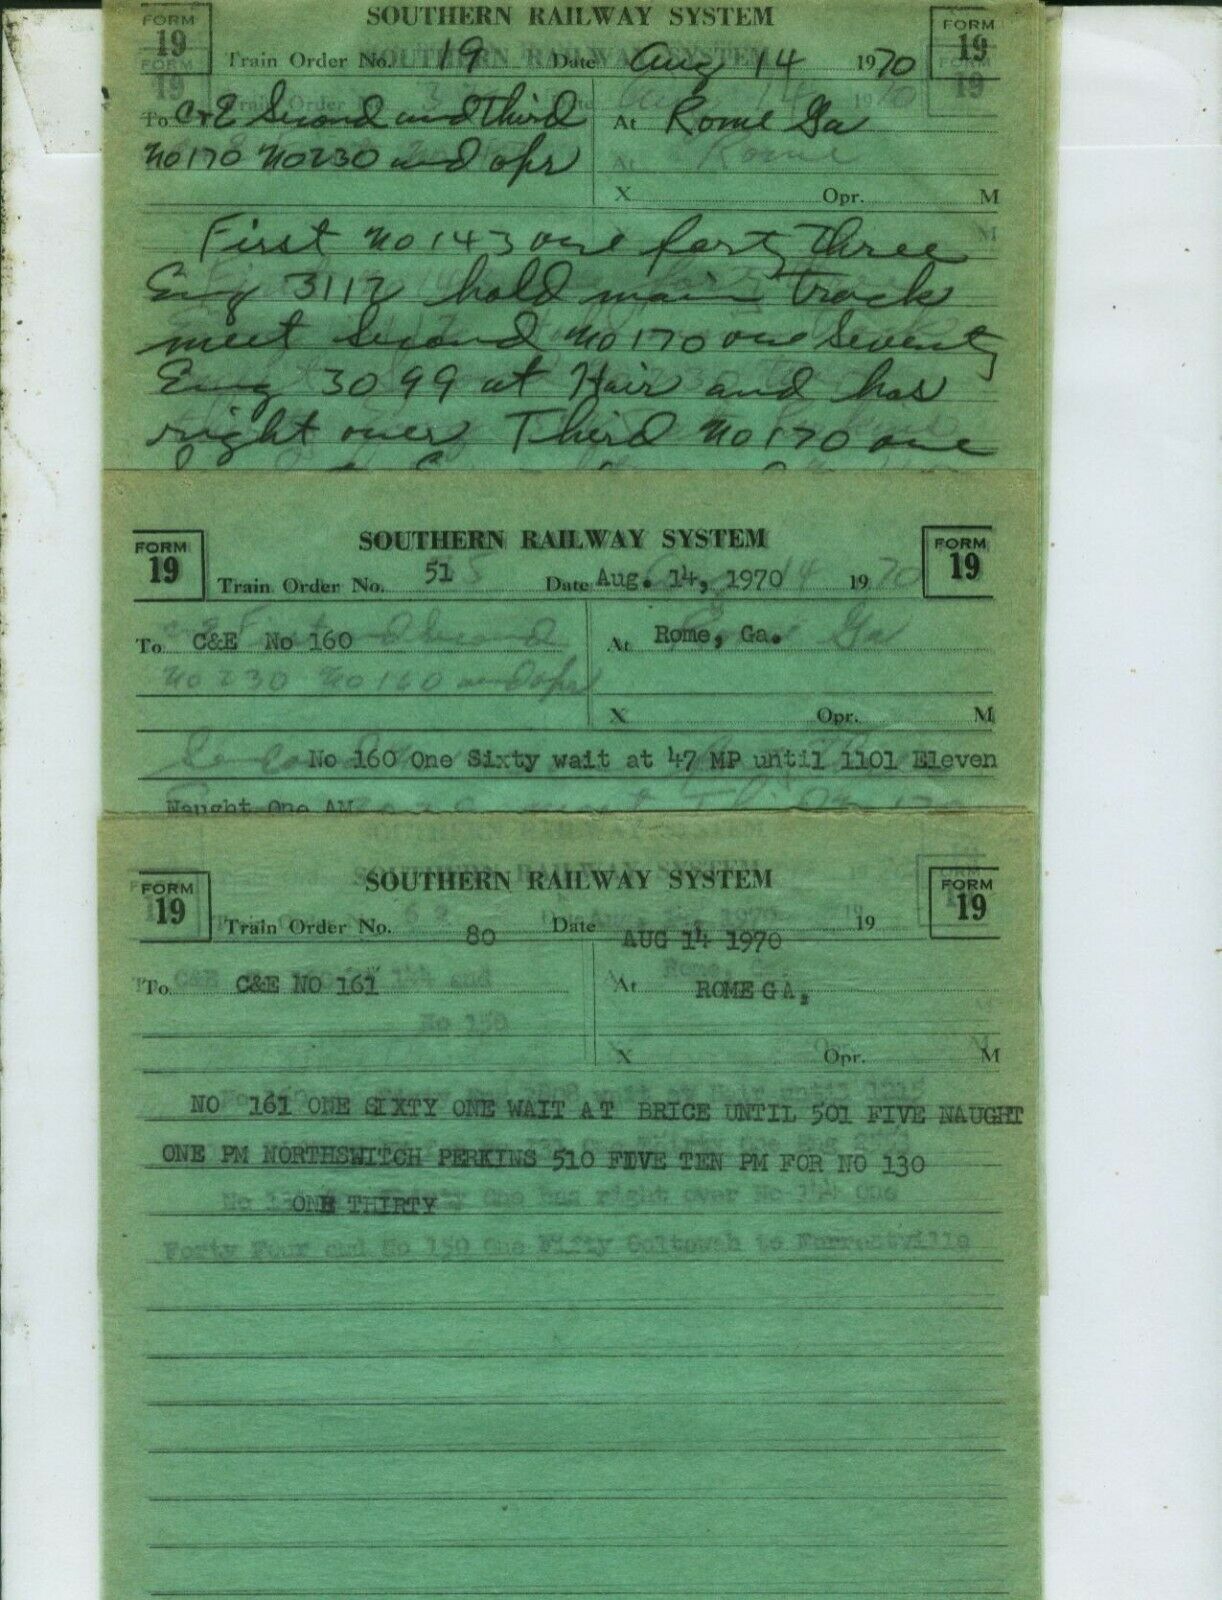 FORM 19 SOUTHERN RAILWAY SYSTEM FORM 19
Train Order No. 19 Date Aug 14 1970
To C+E Second and Third At Rome Ga
No 170 No 230 and opr
X Opr. M
First No 143 one forty three
Eng 3112 hold main track
meet Second No 170 one Seventy
Eng 3099 at Hair and has
right over Third No 170 one
FORM 19 SOUTHERN RAILWAY SYSTEM FORM 19
Train Order No. 51 Date Aug. 14, 1970 19
To C&E No 160 At Rome, Ga.
X Opr. M
No 160 One Sixty wait at 47 MP until 1101 Eleven
Naught One AM
FORM 19 SOUTHERN RAILWAY SYSTEM FORM 19
Train Order No. 80 Date AUG 14 1970 19
To C&E NO 161 At ROME GA,
X Opr. M
NO 161 ONE SIXTY ONE WAIT AT BRICE UNTIL 501 FIVE NAUGHT
ONE PM NORTHSWITCH PERKINS 510 FIVE TEN PM FOR NO 130
ONE THIRTY